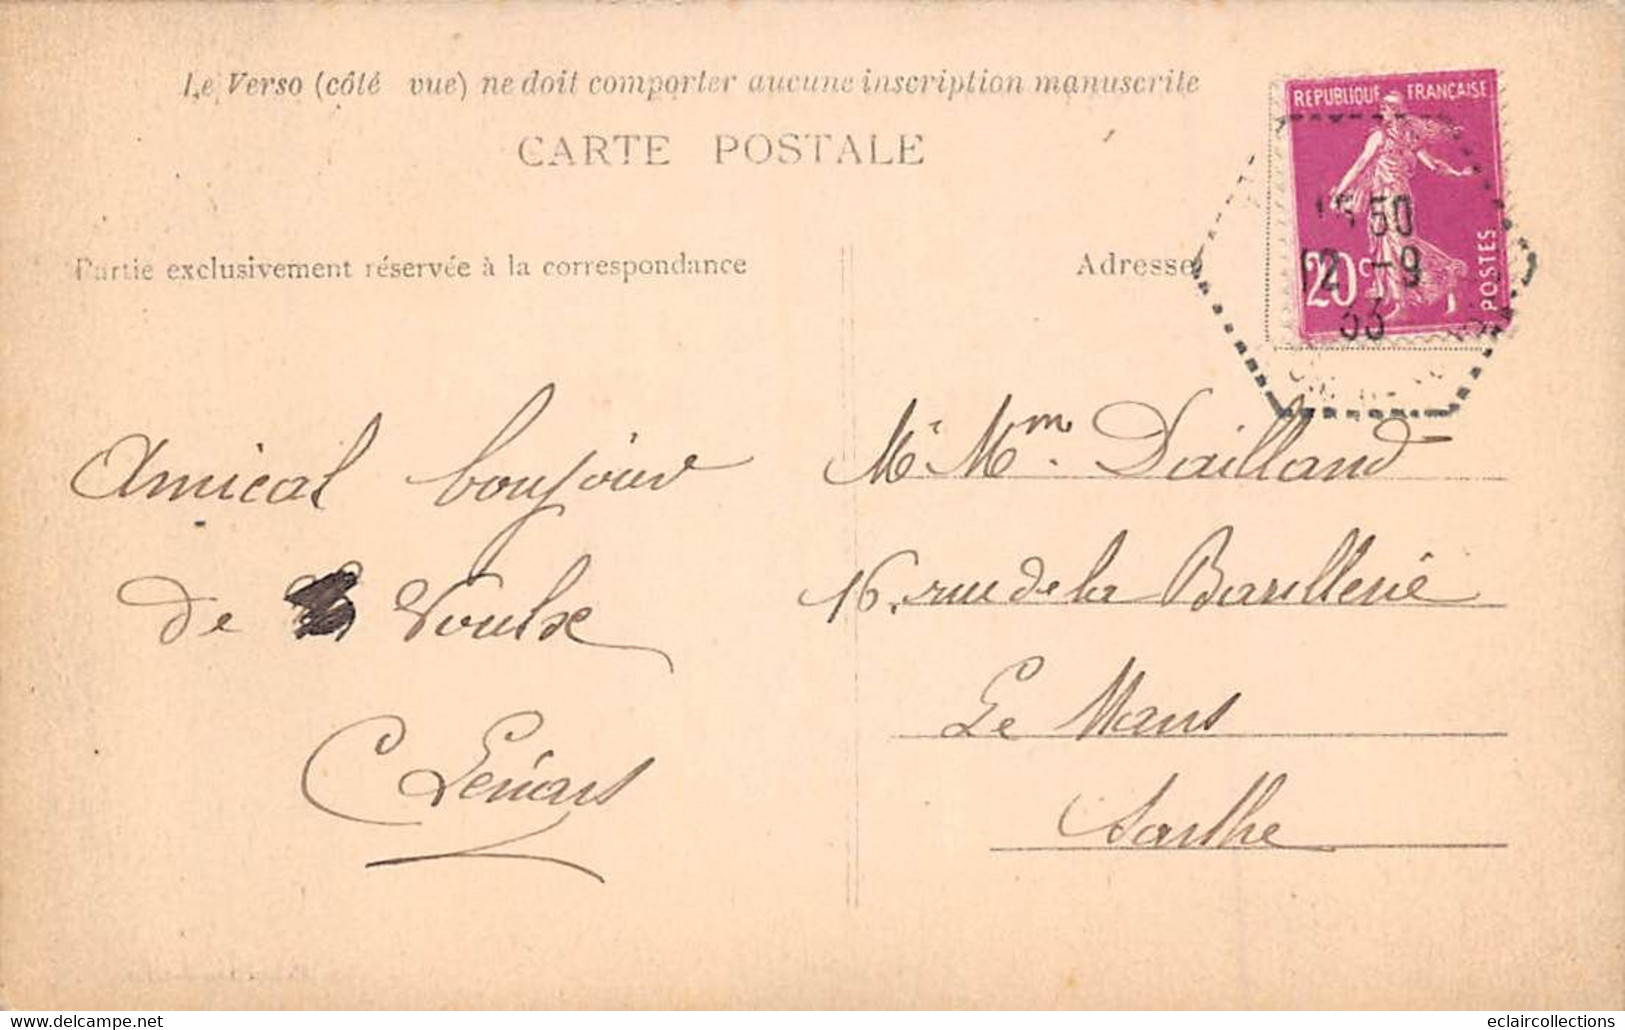 Le Verso (côté vue) ne doit comporter aucune inscription manuscrite
CARTE POSTALE
REPUBLIQUE FRANÇAISE
POSTES
20c
50
12 -9
33
Partie exclusivement réservée à la correspondance
Adresse
Amical bonjour
de Voulx
C Lenars
Mr Mm. Dailland
16, rue de la Barillerie
Le Mans
Sarthe
www.delcampe.net
eclaircollections